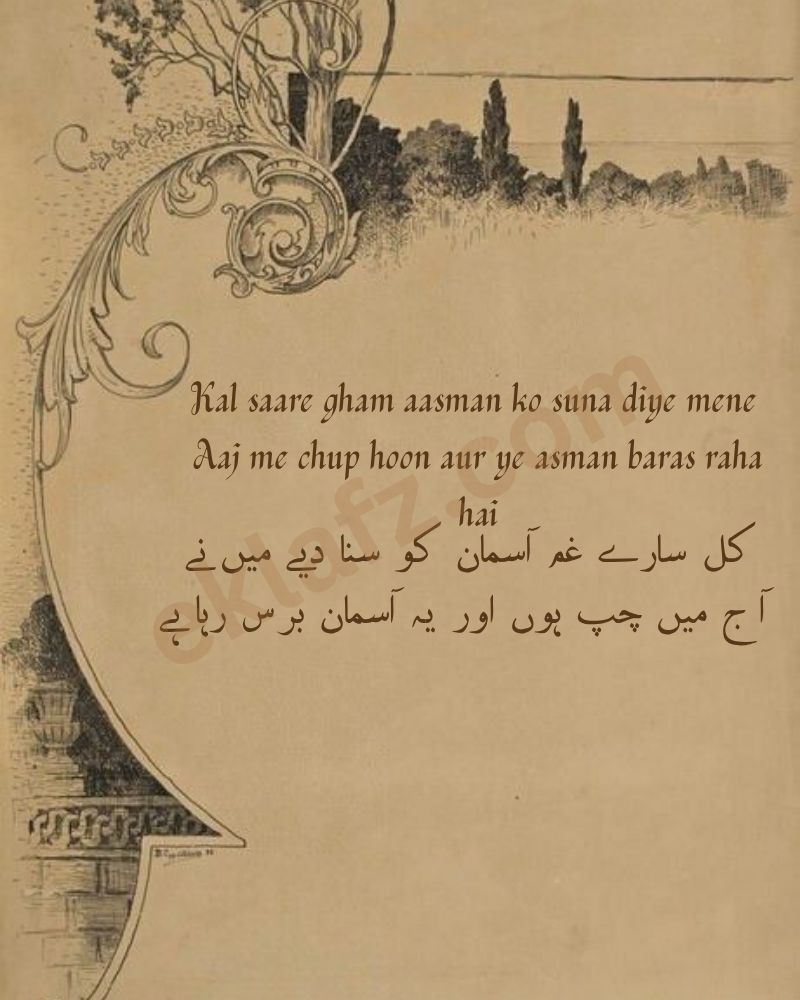 Kal saare gham aasman ko suna diye mene
Aaj me chup hoon aur ye asman baras raha
hai
کل سارے غم آسمان کو سنا دیے میں نے
آج میں چپ ہوں اور یہ آسمان برس رہا ہے
eklafz.com